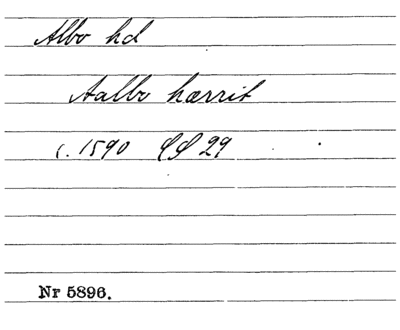 Albo hd
Aalbo hærrit
c. 1590 SS 29
Nr 5896.